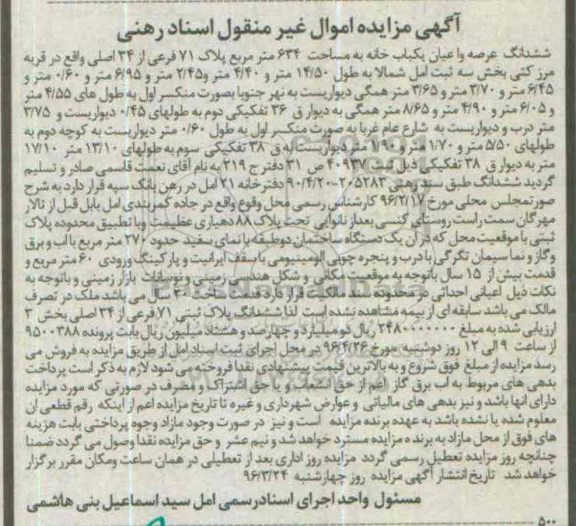 آگهی مزایده اموال غیر منقول اسناد رهنی
ششدانگ عرصه و اعیان یکباب خانه به مساحت ۶۳۴ متر مربع پلاک ۷۱ فرعی از ۳۴ اصلی واقع در قریه
مرز کتی بخش سه ثبت امل شمالا به طول ۱۴/۵۰ متر و ۴/۴۰ متر و ۲/۴۵ متر و ۶/۹۵ متر و ۰/۶۰ متر و
۶/۴۵ متر و ۳/۷۰ متر و ۳/۶۵ متر همگی دیواریست به نهر جنوبا بصورت منکسر اول به طول های ۴/۵۵ متر
و ۶/۰۵ متر و ۴/۹۰ متر و ۸/۶۵ متر همگی به دیوار ق ۳۶ تفکیکی دوم به طولهای ۰/۴۵ دیواریست و ۳/۷۵
متر درب و دیواریست به شارع عام غربا به صورت منکسر اول به طول ۰/۶۰ متر دیواریست به کوچه دوم به
طولهای ۵/۵۰ متر و ۱/۷۰ متر و ۱/۹۰ متر دیواریست به ق ۳۸ تفکیکی سوم به طولهای ۱۳/۱۰ متر ۱۷/۱۰
متر به دیوار ق ۳۸ تفکیکی ذیل ثبت ۴۰۹۳۷ ص ۳۱ دفتر ج ۲۱۹ به نام آقای نعمت قاسمی صادر و تسلیم
گردید ششدانگ طبق سند رهنی ۲۰۵۲۸۳-۹۰/۴/۲۰ دفترخانه ۲۱ امل در رهن بانک سپه قرار دارد به شرح
صورتمجلس محلی مورخ ۹۶/۲/۱۷ کارشناس رسمی محل وقوع واقع در جاده کمربندی امل بابل قبل از تالار
مهرگان سمت راست روستای کنسی بعد از نانوایی تحت پلاک ۸۸ دهیاری عظیمت وبا تطبیق محدوده پلاک
ثبتی با موقعیت محل که در آن یک دستگاه ساختمان دوطبقه با نمای سفید حدود ۲۷۰ متر مربع با آب و برق
وگاز و نما سیمان تگرگی با درب و پنجره چوبی الومینیومی با سقف ایرانیت و پارکینگ ورودی ۶۰ متر مربع و
قدمت بیش از ۱۵ سال باتوجه به موقعیت مکانی و شکل هندسی زمینی و نوسانات بازار زمینی و باتوجه به
نکات ذیل اعیانی احداثی در محدوده سند مالکیت قرار دارد قدمت ساخت ۲۰ سال می باشد ملک در تصرف
مالک می باشد سابقه ای از بیمه مشاهده نشده است لذا ششدانگ پلاک ثبتی ۷۱ فرعی از ۳۴ اصلی بخش ۳
ارزیابی شده به مبلغ ۲۴۸۰۰۰۰۰۰۰ ریال دو میلیارد و چهارصد و هشتاد میلیون ریال بابت پرونده ۹۵۰۰۳۸۸
از ساعت ۹ الی ۱۲ روز دوشنبه مورخ ۹۶/۴/۲۶ در محل اجرای ثبت اسناد امل از طریق مزایده به فروش می
رسد مزایده از مبلغ فوق شروع و به بالاترین قیمت پیشنهادی نقدا فروخته می شود لازم به ذکر است پرداخت
بدهی های مربوط به آب برق گاز اعم از حق انشعاب و یا حق اشتراک و مصرف در صورتی که مورد مزایده
دارای انها باشد و نیز بدهی های مالیاتی و عوارض شهرداری و غیره تا تاریخ مزایده اعم از اینکه رقم قطعی ان
معلوم شده یا نشده باشد به عهده برنده مزایده است و نیز در صورت وجود مازاد وجوه پرداختی بابت هزینه
های فوق از محل مازاد به برنده مزایده مسترد خواهد شد و نیم عشر و حق مزایده نقدا وصول می گردد ضمنا
چنانچه روز مزایده تعطیل رسمی گردد مزایده روز اداری بعد از تعطیلی در همان ساعت ومکان مقرر برگزار
خواهد شد تاریخ انتشار آگهی مزایده روز چهارشنبه ۹۶/۳/۲۴
مسئول واحد اجرای اسناد رسمی امل سید اسماعیل بنی هاشمی
۵۰۰